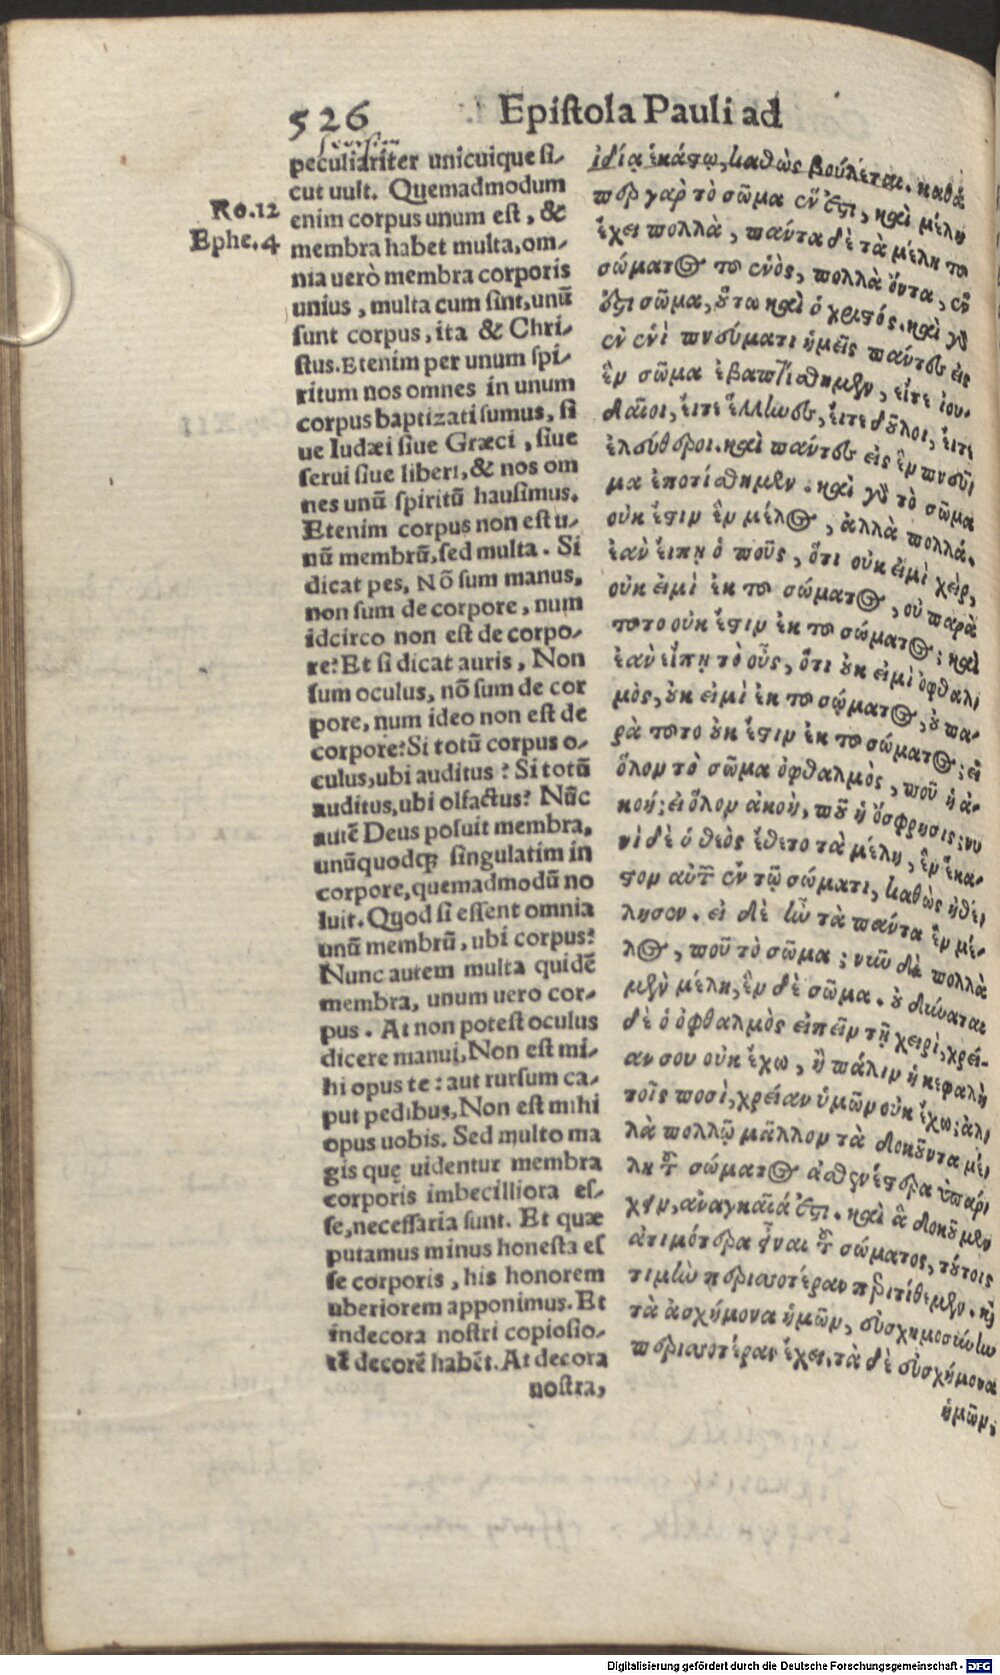 526 Epistola Pauli ad
seorsim
peculiariter unicuique si-
cut uult. Quemadmodum
Ro.12
enim corpus unum est, &
Ephe.4
membra habet multa, om-
nia uerò membra corporis
unius, multa cum sint, unũ
sunt corpus, ita & Chri-
stus. Etenim per unum spi-
ritum nos omnes in unum
corpus baptizati sumus, si
ue Iudæi siue Græci, siue
serui siue liberi, & nos om
nes unũ spiritũ hausimus.
Etenim corpus non est u-
nũ membrũ, sed multa. Si
dicat pes, Nõ sum manus,
non sum de corpore, num
idcirco non est de corpo-
re? Et si dicat auris, Non
sum oculus, nõ sum de cor
pore, num ideo non est de
corpore? Si totũ corpus o-
culus, ubi auditus? Si totũ
auditus, ubi olfactus? Nũc
autẽ Deus posuit membra,
unũquodq; singulatim in
corpore, quemadmodũ uo
luit. Quod si essent omnia
unũ membrũ, ubi corpus?
Nunc autem multa quidẽ
membra, unum uero cor-
pus. At non potest oculus
dicere manui, Non est mi-
hi opus te: aut rursum ca-
put pedibus, Non est mihi
opus uobis. Sed multo ma
gis quę uidentur membra
corporis imbecilliora es-
se, necessaria sunt. Et quæ
putamus minus honesta es
se corporis, his honorem
uberiorem apponimus. Et
indecora nostri copiosio-
rẽ decorẽ habẽt. At decora
nostra,
ἰδίᾳ ἑκάστῳ, καθὼς βούλεται. καθά
περ γὰρ τὸ σῶμα ἕν ἐστι, καὶ μέλη
ἔχει πολλὰ, πάντα δὲ τὰ μέλη τοῦ
σώματος τοῦ ἑνὸς, πολλὰ ὄντα, ἕν
ἐστι σῶμα, οὕτω καὶ ὁ χριστός. καὶ γὰρ
ἐν ἑνὶ πνεύματι ἡμεῖς πάντες εἰς
ἓν σῶμα ἐβαπτίσθημεν, εἴτε ἰου-
δαῖοι, εἴτε ἕλληνες, εἴτε δοῦλοι, εἴτε
ἐλεύθεροι. καὶ πάντες εἰς ἓν πνεῦ
μα ἐποτίσθημεν. καὶ γὰρ τὸ σῶμα
οὐκ ἔστιν ἓν μέλος, ἀλλὰ πολλά.
ἐὰν εἴπῃ ὁ ποῦς, ὅτι οὐκ εἰμὶ χεὶρ,
οὐκ εἰμὶ ἐκ τοῦ σώματος, οὐ παρὰ
τοῦτο οὐκ ἔστιν ἐκ τοῦ σώματος; καὶ
ἐὰν εἴπῃ τὸ οὖς, ὅτι οὐκ εἰμὶ ὀφθαλ
μὸς, οὐκ εἰμὶ ἐκ τοῦ σώματος, οὐ πα-
ρὰ τοῦτο οὐκ ἔστιν ἐκ τοῦ σώματος; εἰ
ὅλον τὸ σῶμα ὀφθαλμὸς, ποῦ ἡ ἀ-
κοή; εἰ ὅλον ἀκοὴ, ποῦ ἡ ὄσφρησις; νυ
νὶ δὲ ὁ θεὸς ἔθετο τὰ μέλη, ἓν ἕκα-
στον αὐτῶν ἐν τῷ σώματι, καθὼς ἠθέ
λησεν. εἰ δὲ ἦν τὰ πάντα ἓν μέ-
λος, ποῦ τὸ σῶμα; νῦν δὲ πολλὰ
μὲν μέλη, ἓν δὲ σῶμα. οὐ δύναται
δὲ ὁ ὀφθαλμὸς εἰπεῖν τῇ χειρὶ, χρεί-
αν σου οὐκ ἔχω, ἢ πάλιν ἡ κεφαλὴ
τοῖς ποσὶ, χρείαν ὑμῶν οὐκ ἔχω; ἀλ
λὰ πολλῷ μᾶλλον τὰ δοκοῦντα μέ
λη τοῦ σώματος ἀσθενέστερα ὑπάρ
χειν, ἀναγκαῖά ἐστι. καὶ ἃ δοκοῦμεν
ἀτιμότερα εἶναι τοῦ σώματος, τούτοις
τιμὴν περισσοτέραν περιτίθεμεν. καὶ
τὰ ἀσχήμονα ἡμῶν, εὐσχημοσύνην
περισσοτέραν ἔχει. τὰ δὲ εὐσχήμονα
ἡμῶν,
Digitalisierung gefördert durch die Deutsche Forschungsgemeinschaft - DFG